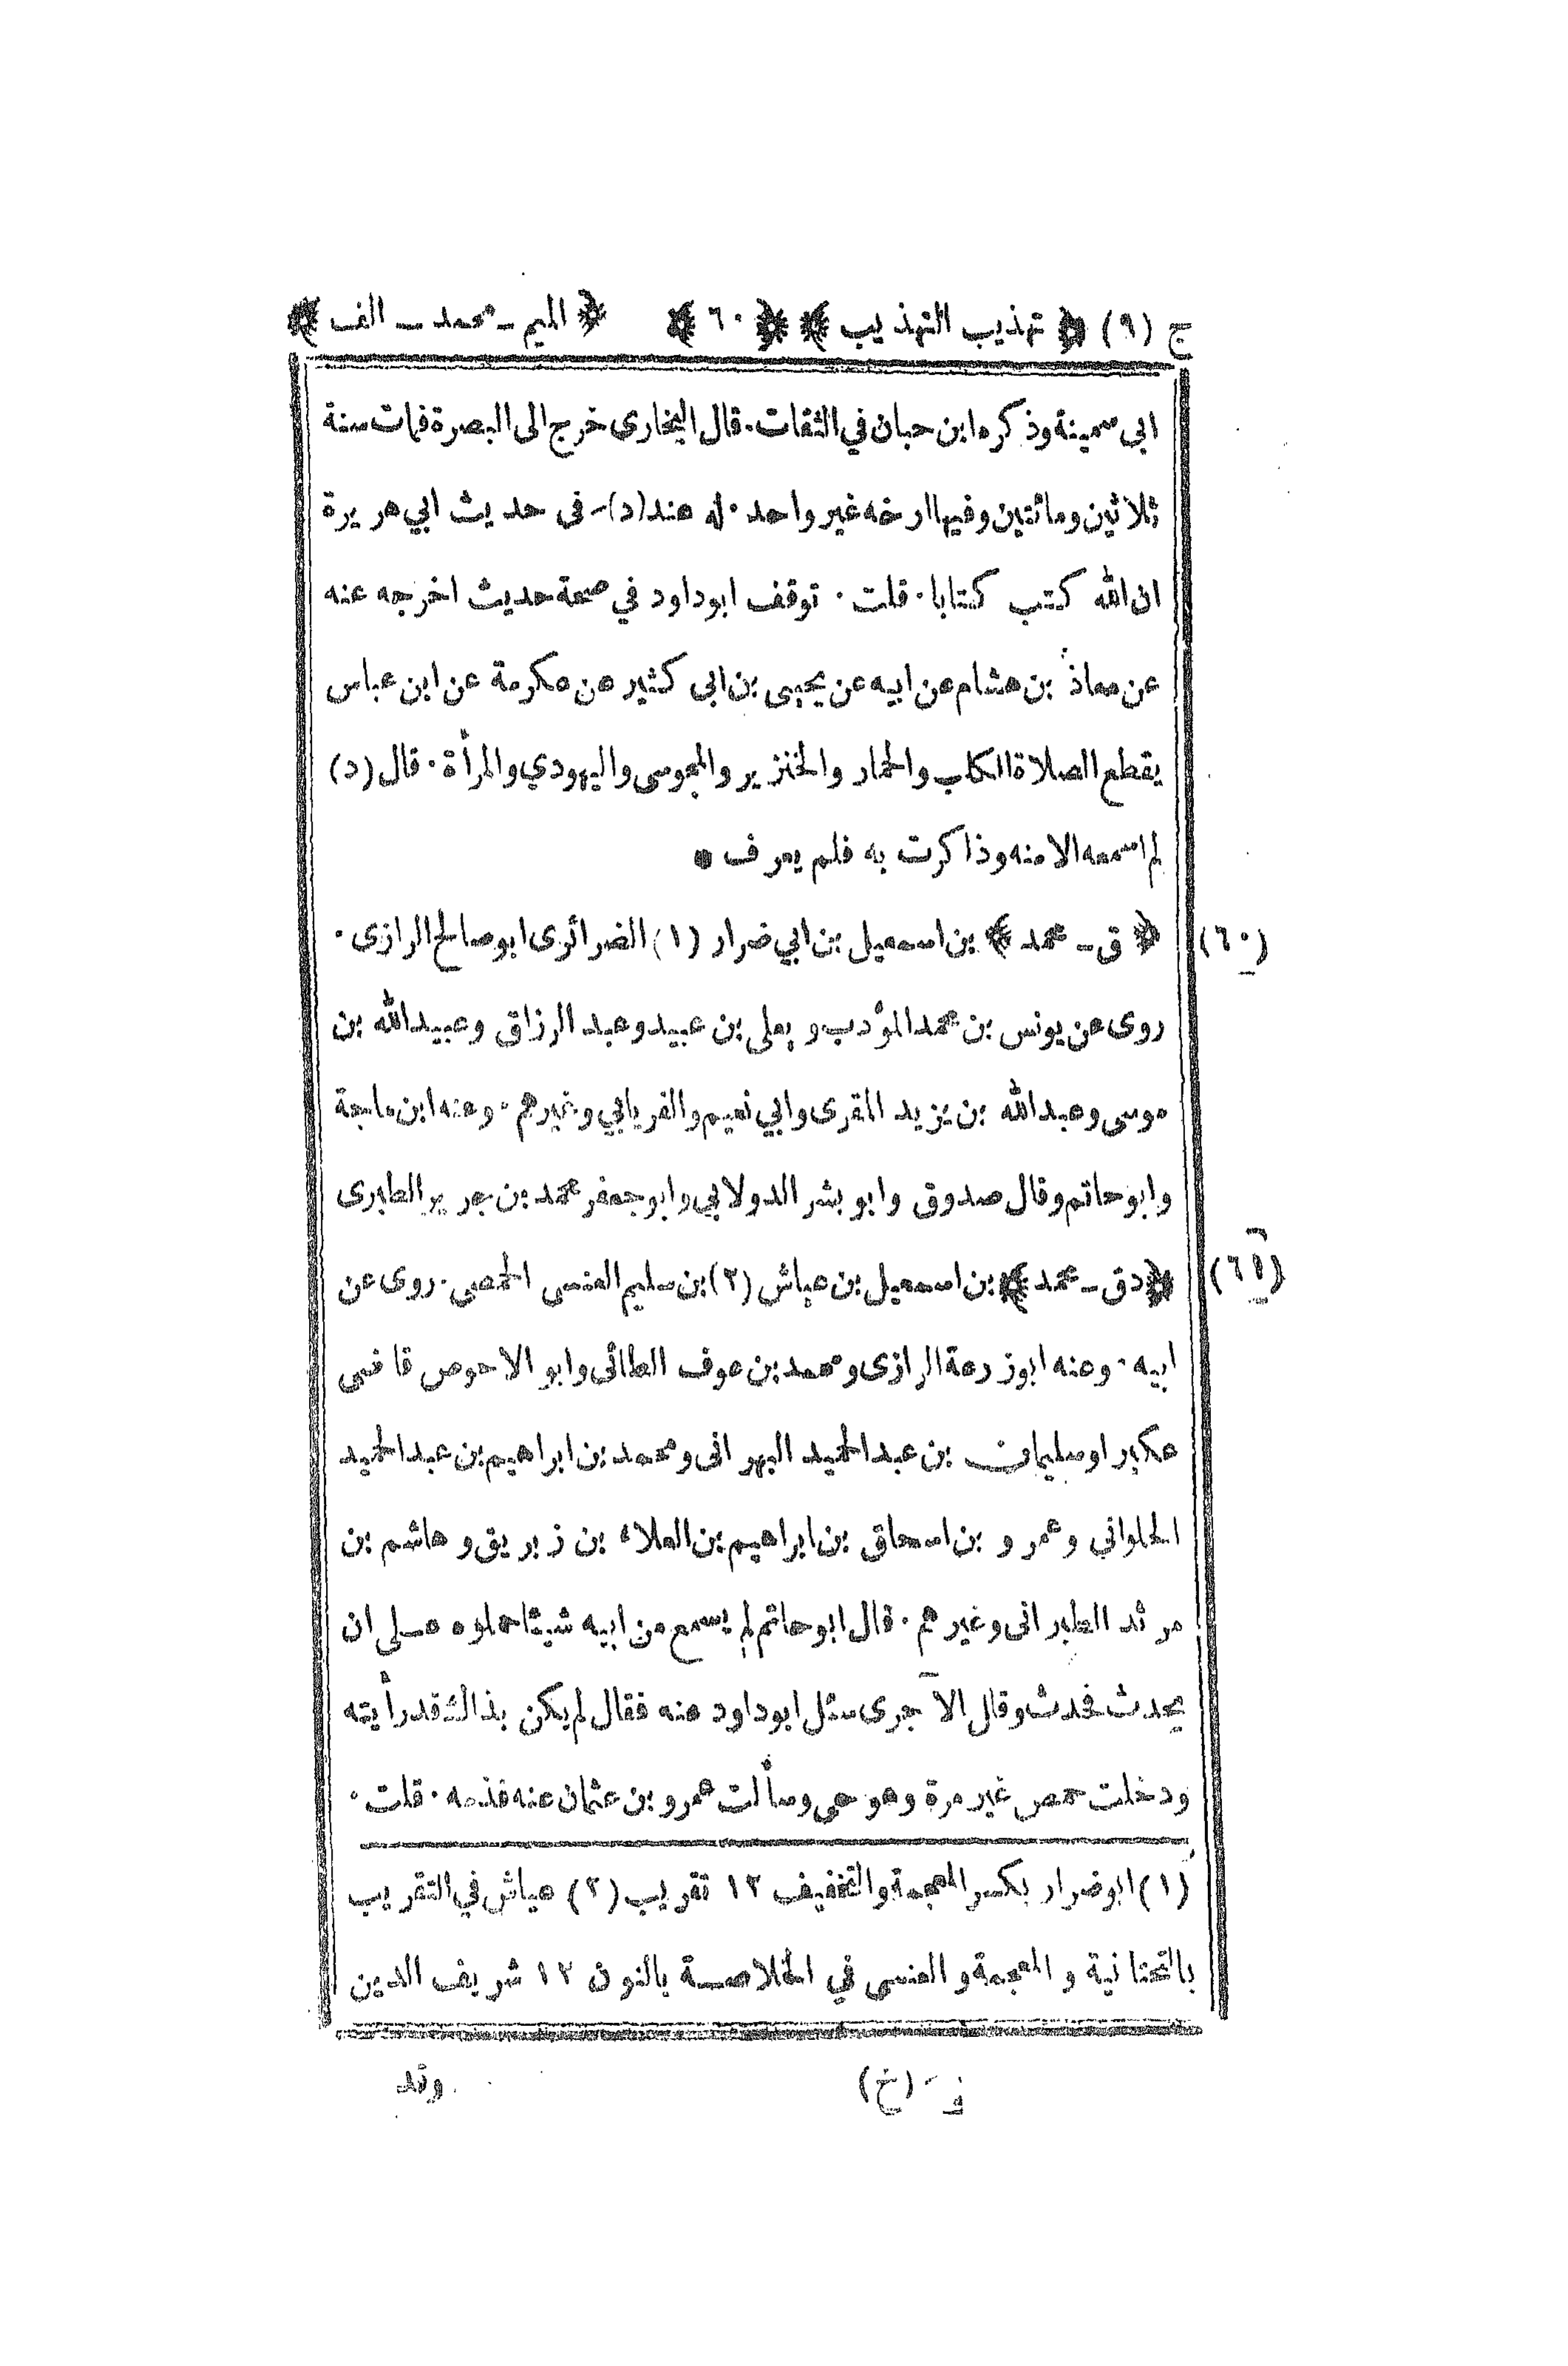 ج (٩) ﴿ تهذيب التهذيب ﴾ ﴿ ٦٠ ﴾ ﴿ الميم - محمد - الف ﴾
ابى سمينة وذكره ابن حبان في الثقات. قال البخارى خرج الى البصرة فمات سنة
ثلاثين ومائتين وفيها ارخه غير واحد. له عند (د) - فى حديث ابي هريرة
ان الله كتب كتابا. قلت. توقف ابو داود في صحة حديث اخرجه عنه
عن معاذ بن هشام عن ابيه عن يحيى بن ابى كثير عن عكرمة عن ابن عباس
يقطع الصلاة الكلب والحمار والخنزير والمجوسى واليهودي والمرأة. قال (د)
لم اسمعه الا منه وذاكرت به فلم يعرف *
(٦٠) ﴿ ق - محمد ﴾ بن اسمعيل بن ابي ضرار (١) الضرائرى ابو صالح الرازى.
روى عن يونس بن محمد المؤدب و يعلى بن عبيد وعبد الرزاق وعبيد الله بن
موسى وعبد الله بن يزيد المقرى وابي نعيم والفريابي وغيرهم. وعنه ابن ماجة
وابو حاتم وقال صدوق وابو بشر الدولابي وابو جعفر محمد بن جرير الطبرى
(٦١) ﴿ د ق - محمد ﴾ بن اسمعيل بن عياش (٢) بن سليم العنسى الحمصى. روى عن
ابيه. وعنه ابو زرعة الرازى ومحمد بن عوف الطائى وابو الاحوص قاضى
عكبرا وسليمان بن عبد الحميد البهرانى ومحمد بن ابراهيم بن عبد الحميد
الحلواني وعمرو بن اسحاق بن ابراهيم بن العلاء بن زبريق وهاشم بن
مرثد الطبرانى وغيرهم. قال ابو حاتم لم يسمع من ابيه شيئا حملوه على ان
يحدث فحدث وقال الآجرى سئل ابو داود عنه فقال لم يكن بذاك قد رأيته
ودخلت حمص غير مرة وهو حى وسألت عمرو بن عثمان عنه فذمه. قلت.
(١) ابو ضرار بكسر المعجمة والتخفيف ١٢ تقريب (٢) عياش في التقريب
بالتحتانية و المعجمة و العنسى في الخلاصة بالنون ١٢ شريف الدين
(خ)
وقد